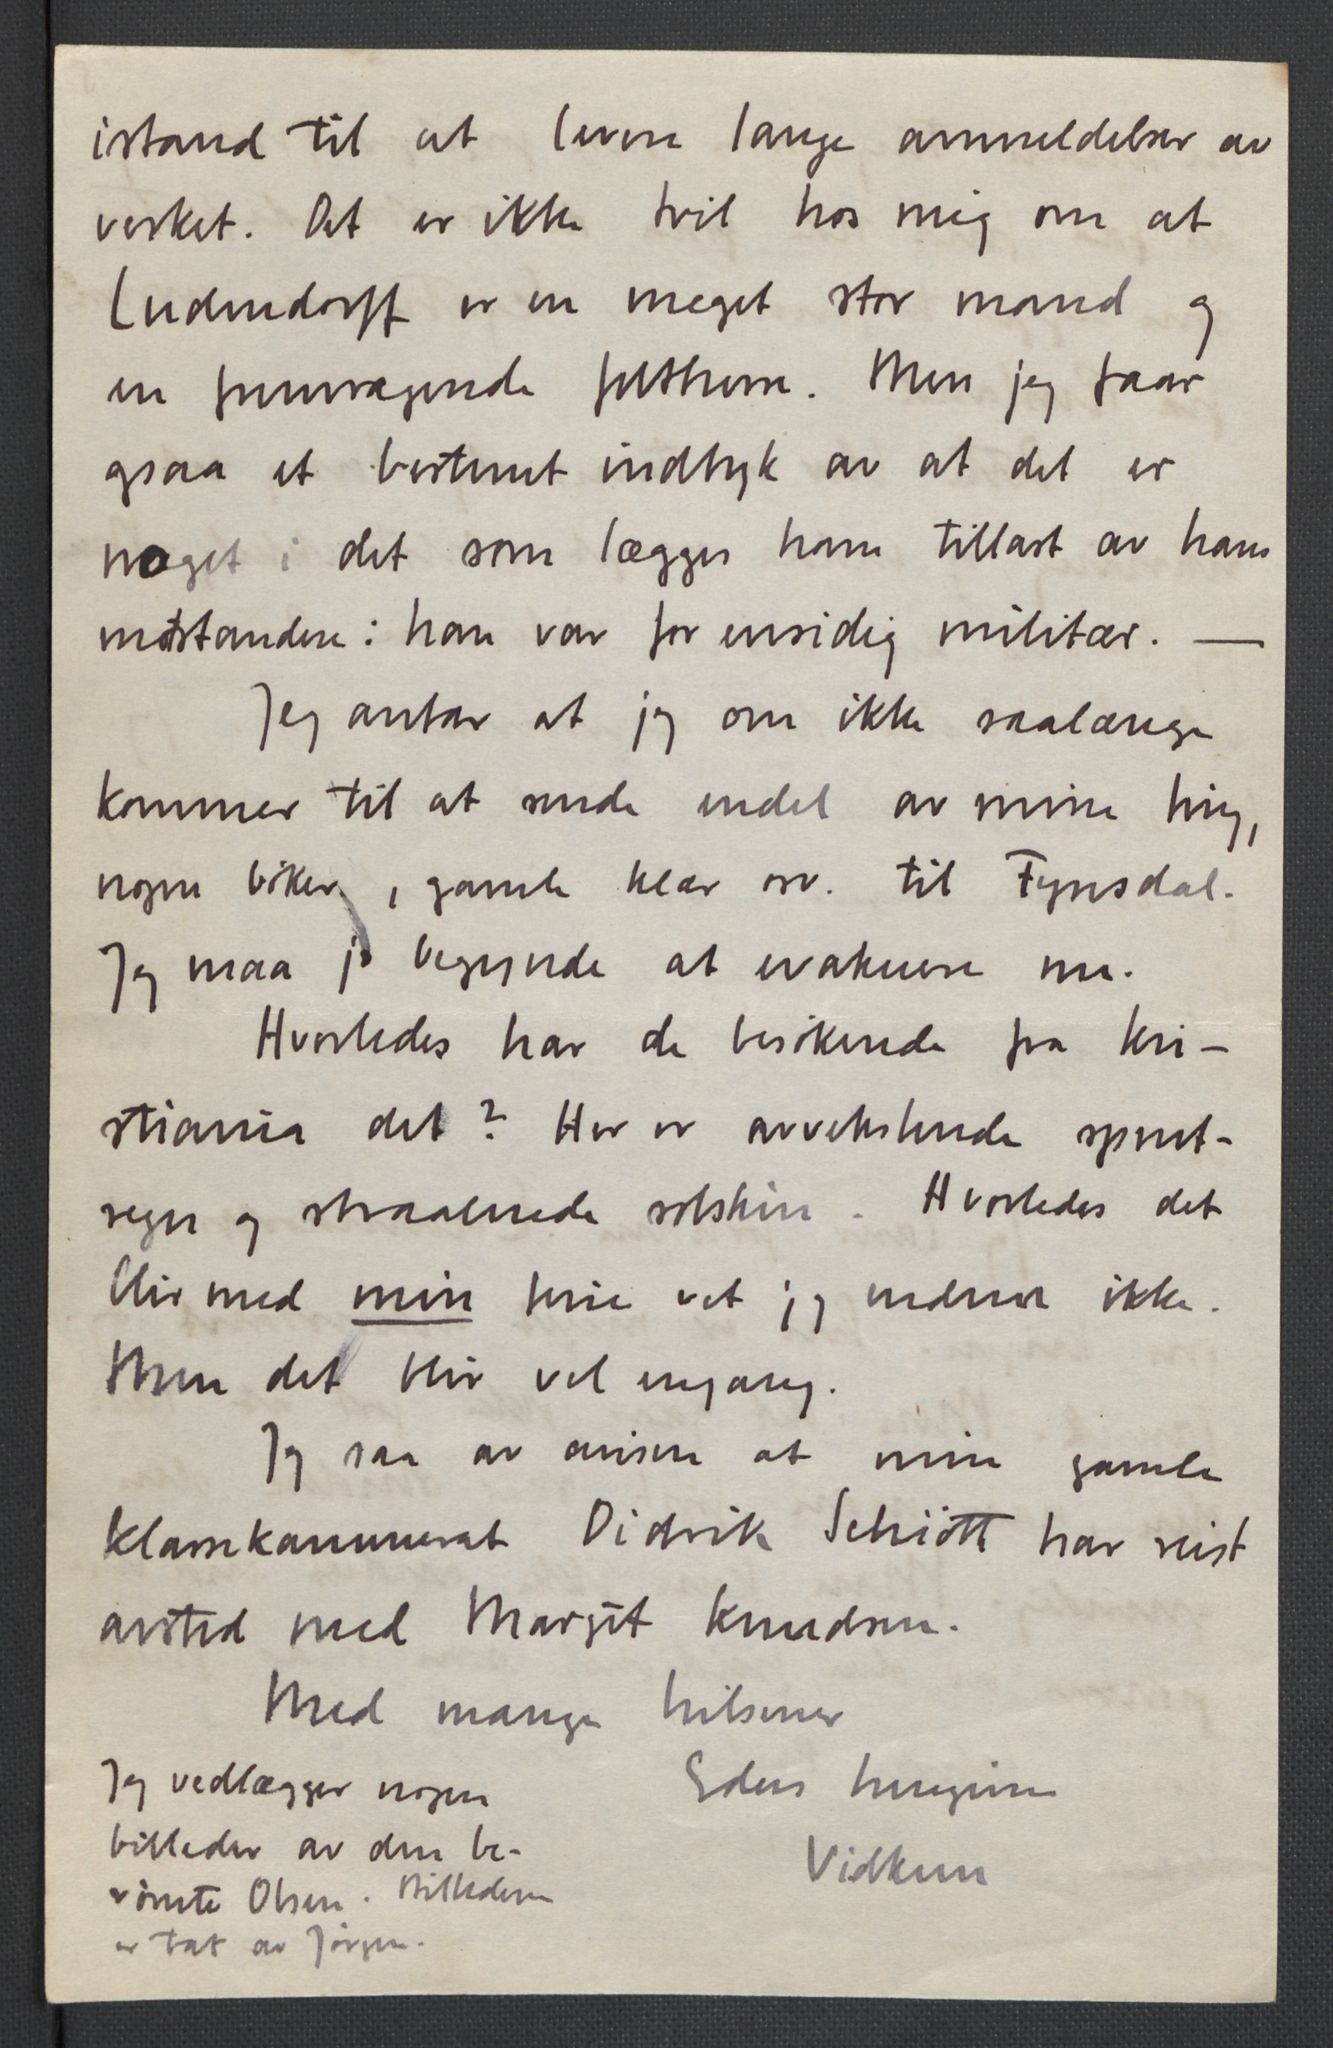 istand til at levere lange anmeldelser av
verket. Det er ikke tvil hos mig om at
Ludendorff er en meget stor mand og
en fremragende feltherre. Men jeg faar
ogsaa et bestemt indtryk av at det er
noget i det som lægges ham tillast av hans
motstandere: han var for ensidig militær. —
Jeg antar at jeg om ikke saalænge
kommer til at sende endel av mine ting,
nogen böker, gamle klær osv. til Fyresdal.
Jeg maa jo begynde at evakuere nu.
Hvorledes har de besökende fra Kri-
stiania det? Her er avvekslende sprut-
regn og straalende solskin. Hvorledes det
blir med min ferie vet jeg endnu ikke.
Men det blir vel engang.
Jeg saa av avisen at min gamle
klassekammerat Didrik Schiött har reist
avsted med Margit Knudsen.
Med mange hilsener
Eders hengivne
Vidkun
Jeg vedlægger nogen
billeder av den be-
römte Olsen. Billederne
er tat av Jörgen.